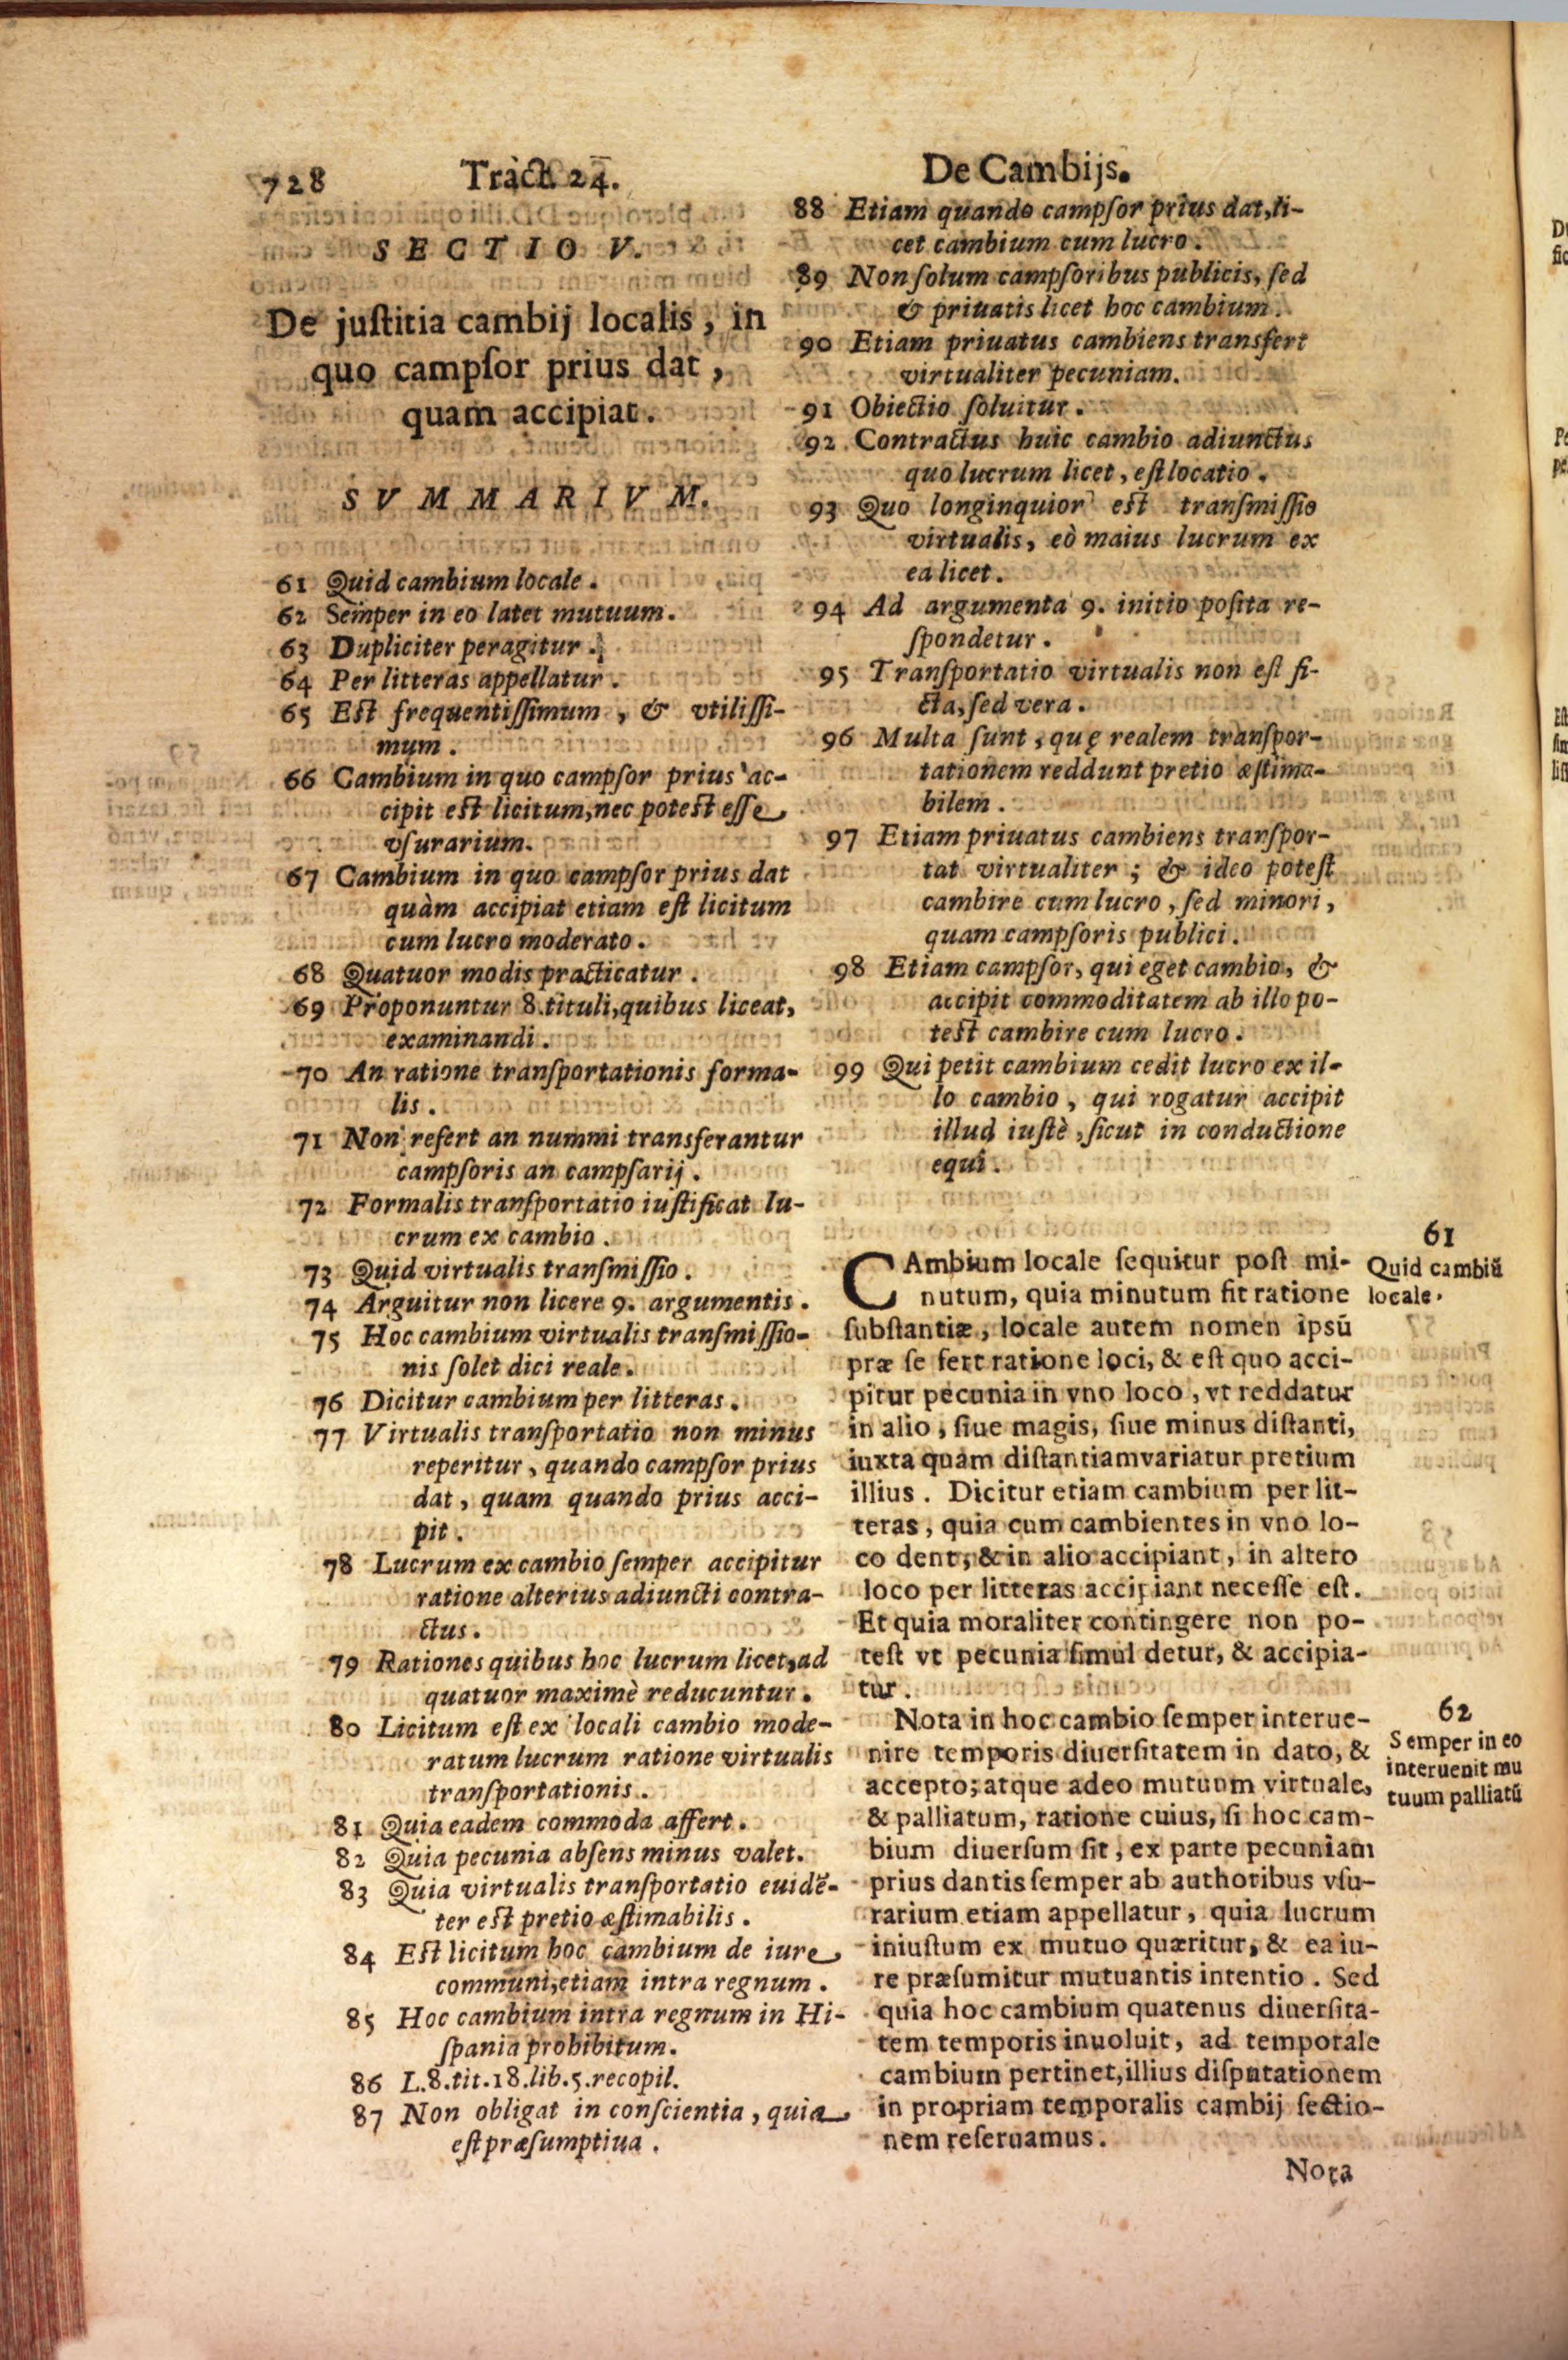 728 Tract. 24. De Cambijs.
SECTIO V.
De juſtitia cambij localis, in
quo campſor prius dat,
quam accipiat.
SVMMARIVM.
61 Quid cambium locale.
62 Semper in eo latet mutuum.
63 Dupliciter peragitur.
64 Per litteras appellatur.
65 Eſt frequentiſſimum, & vtiliſſi-
mum.
66 Cambium in quo campſor prius ac-
cipit eſt licitum, nec poteſt eſſe
vſurarium.
67 Cambium in quo campſor prius dat
quàm accipiat etiam eſt licitum
cum lucro moderato.
68 Quatuor modis practicatur.
69 Proponuntur 8. tituli, quibus liceat,
examinandi.
70 An ratione tranſportationis forma-
lis.
71 Non refert an nummi transferantur
campſoris an campſarij.
72 Formalis tranſportatio iuſtificat lu-
crum ex cambio.
73 Quid virtualis tranſmiſſio.
74 Arguitur non licere 9. argumentis.
75 Hoc cambium virtualis tranſmiſſio-
nis ſolet dici reale.
76 Dicitur cambium per litteras.
77 Virtualis tranſportatio non minus
reperitur, quando campſor prius
dat, quam quando prius acci-
pit.
78 Lucrum ex cambio ſemper accipitur
ratione alterius adiuncti contra-
ctus.
79 Rationes quibus hoc lucrum licet, ad
quatuor maximè reducuntur.
80 Licitum eſt ex locali cambio mode-
ratum lucrum ratione virtualis
tranſportationis.
81 Quia eadem commoda affert.
82 Quia pecunia abſens minus valet.
83 Quia virtualis tranſportatio euidẽ-
ter eſt pretio æſtimabilis.
84 Eſt licitum hoc cambium de iure
communi, etiam intra regnum.
85 Hoc cambium intra regnum in Hi-
ſpania prohibitum.
86 L.8.tit.18.lib.5.recopil.
87 Non obligat in conſcientia, quia
eſt præſumptiua.
88 Etiam quando campſor prius dat, li-
cet cambium cum lucro.
89 Non ſolum campſoribus publicis, ſed
& priuatis licet hoc cambium.
90 Etiam priuatus cambiens transfert
virtualiter pecuniam.
91 Obiectio ſoluitur.
92 Contractus huic cambio adiunctus
quo lucrum licet, eſt locatio.
93 Quo longinquior eſt tranſmiſſio
virtualis, eò maius lucrum ex
ea licet.
94 Ad argumenta 9. initio poſita re-
ſpondetur.
95 Tranſportatio virtualis non eſt fi-
cta, ſed vera.
96 Multa ſunt, quę realem tranſpor-
tationem reddunt pretio æſtima-
bilem.
97 Etiam priuatus cambiens tranſpor-
tat virtualiter; & ideo poteſt
cambire cum lucro, ſed minori,
quam campſoris publici.
98 Etiam campſor, qui eget cambio, &
accipit commoditatem ab illo po-
teſt cambire cum lucro.
99 Qui petit cambium cedit lucro ex il-
lo cambio, qui rogatur accipit
illud iuſtè, ſicut in conductione
equi.
61
Quid cambiũ
locale.
CAmbium locale ſequitur poſt mi-
nutum, quia minutum fit ratione
ſubſtantiæ, locale autem nomen ipsũ
præ ſe fert ratione loci, & eſt quo acci-
pitur pecunia in vno loco, vt reddatur
in alio, ſiue magis, ſiue minus diſtanti,
iuxta quam diſtantiamvariatur pretium
illius. Dicitur etiam cambium per lit-
teras, quia cum cambientes in vno lo-
co dent, & in alio accipiant, in altero
loco per litteras accipiant neceſſe eſt.
Et quia moraliter contingere non po-
teſt vt pecunia ſimul detur, & accipia-
tur.
62
Semper in eo
interuenit mu
tuum palliatũ
Nota in hoc cambio ſemper interue-
nire temporis diuerſitatem in dato, &
accepto; atque adeo mutuum virtuale,
& palliatum, ratione cuius, ſi hoc cam-
bium diuerſum ſit, ex parte pecuniam
prius dantis ſemper ab authoribus vſu-
rarium etiam appellatur, quia lucrum
iniuſtum ex mutuo quæritur, & ea iu-
re præſumitur mutuantis intentio. Sed
quia hoc cambium quatenus diuerſita-
tem temporis inuoluit, ad temporale
cambium pertinet, illius diſputationem
in propriam temporalis cambij ſectio-
nem reſeruamus.
Nota